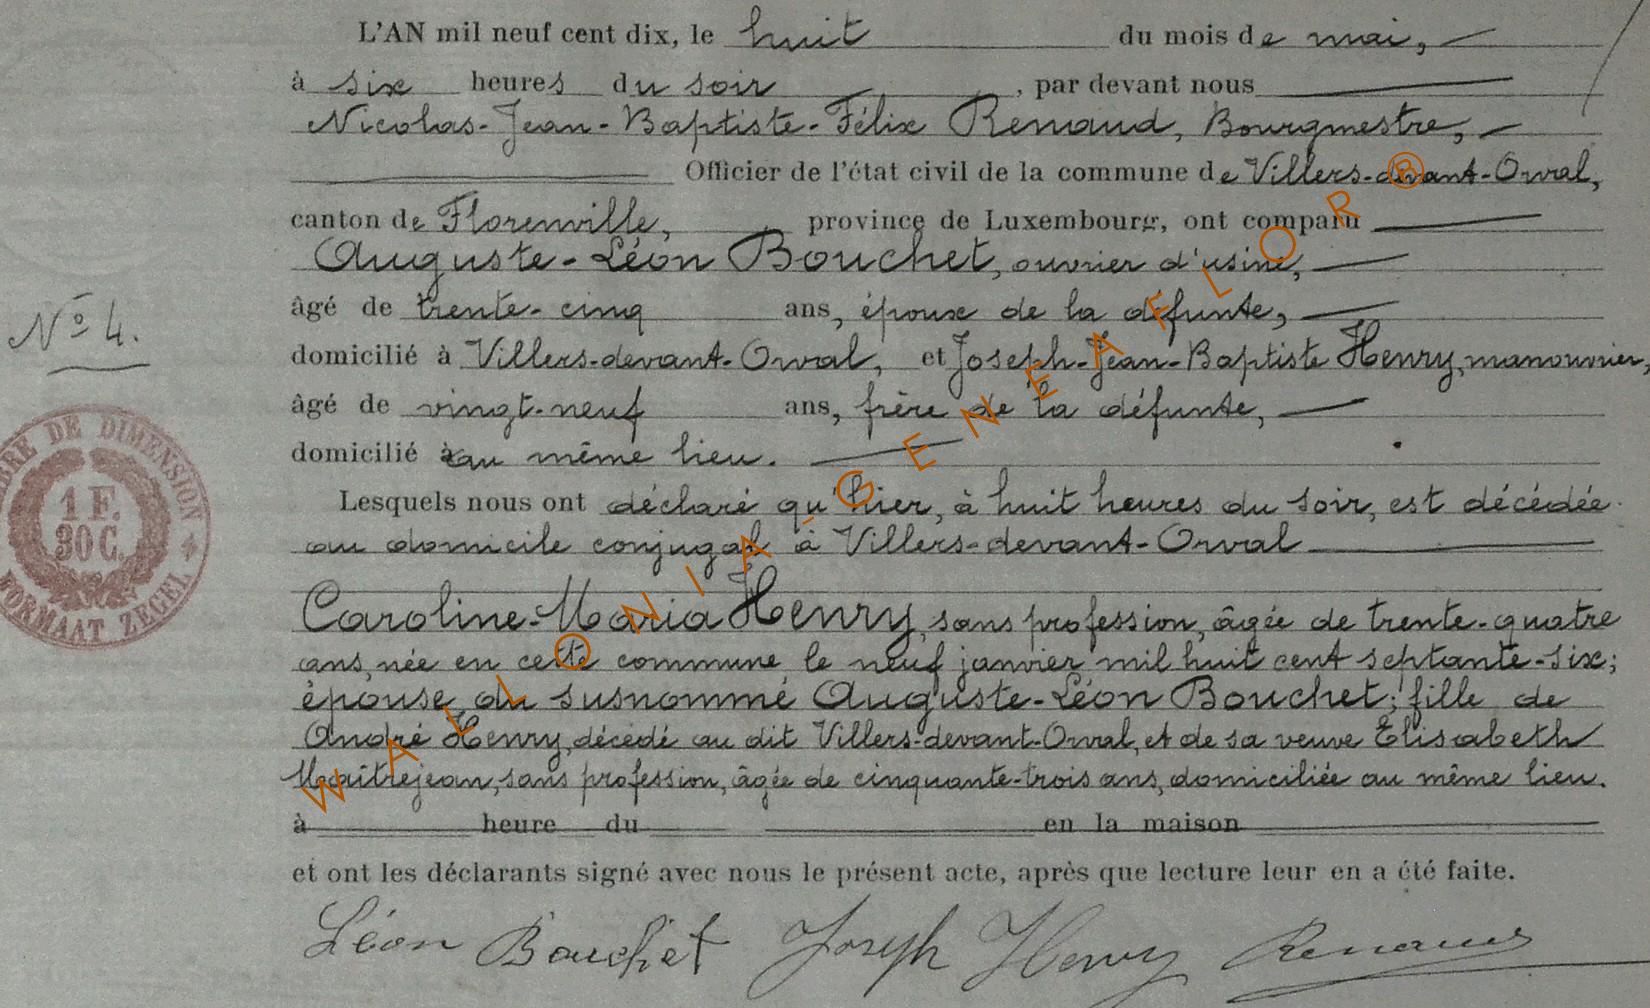 L'AN mil neuf cent dix, le huit du mois de mai,
à six heures du soir, par devant nous
Nicolas-Jean-Baptiste-Félix Renaud, Bourgmestre,
Officier de l'état civil de la commune de Villers-devant-Orval,
canton de Florenville, province de Luxembourg, ont comparu
Auguste-Léon Bouchet, ouvrier d'usine,
âgé de trente-cinq ans, époux de la défunte,
domicilié à Villers-devant-Orval, et Joseph-Jean-Baptiste Henry, manouvrier,
Nº 4.
âgé de vingt-neuf ans, frère de la défunte,
domicilié au même lieu.
Lesquels nous ont déclaré qu'hier, à huit heures du soir, est décédée
au domicile conjugal à Villers-devant-Orval
Caroline-Maria Henry, sans profession, âgée de trente-quatre
ans, née en cette commune le neuf janvier mil huit cent septante-six;
épouse du susnommé Auguste-Léon Bouchet; fille de
André Henry, décédé au dit Villers-devant-Orval, et de sa veuve Elisabeth
Maîtrejean, sans profession, âgée de cinquante-trois ans, domiciliée au même lieu.
à heure du en la maison
et ont les déclarants signé avec nous le présent acte, après que lecture leur en a été faite.
Léon Bouchet Joseph Henry Renaud
DE DIMENSION
1 F.
30 C.
FORMAAT ZEGEL
WAELONIA-GENEAFLOR®